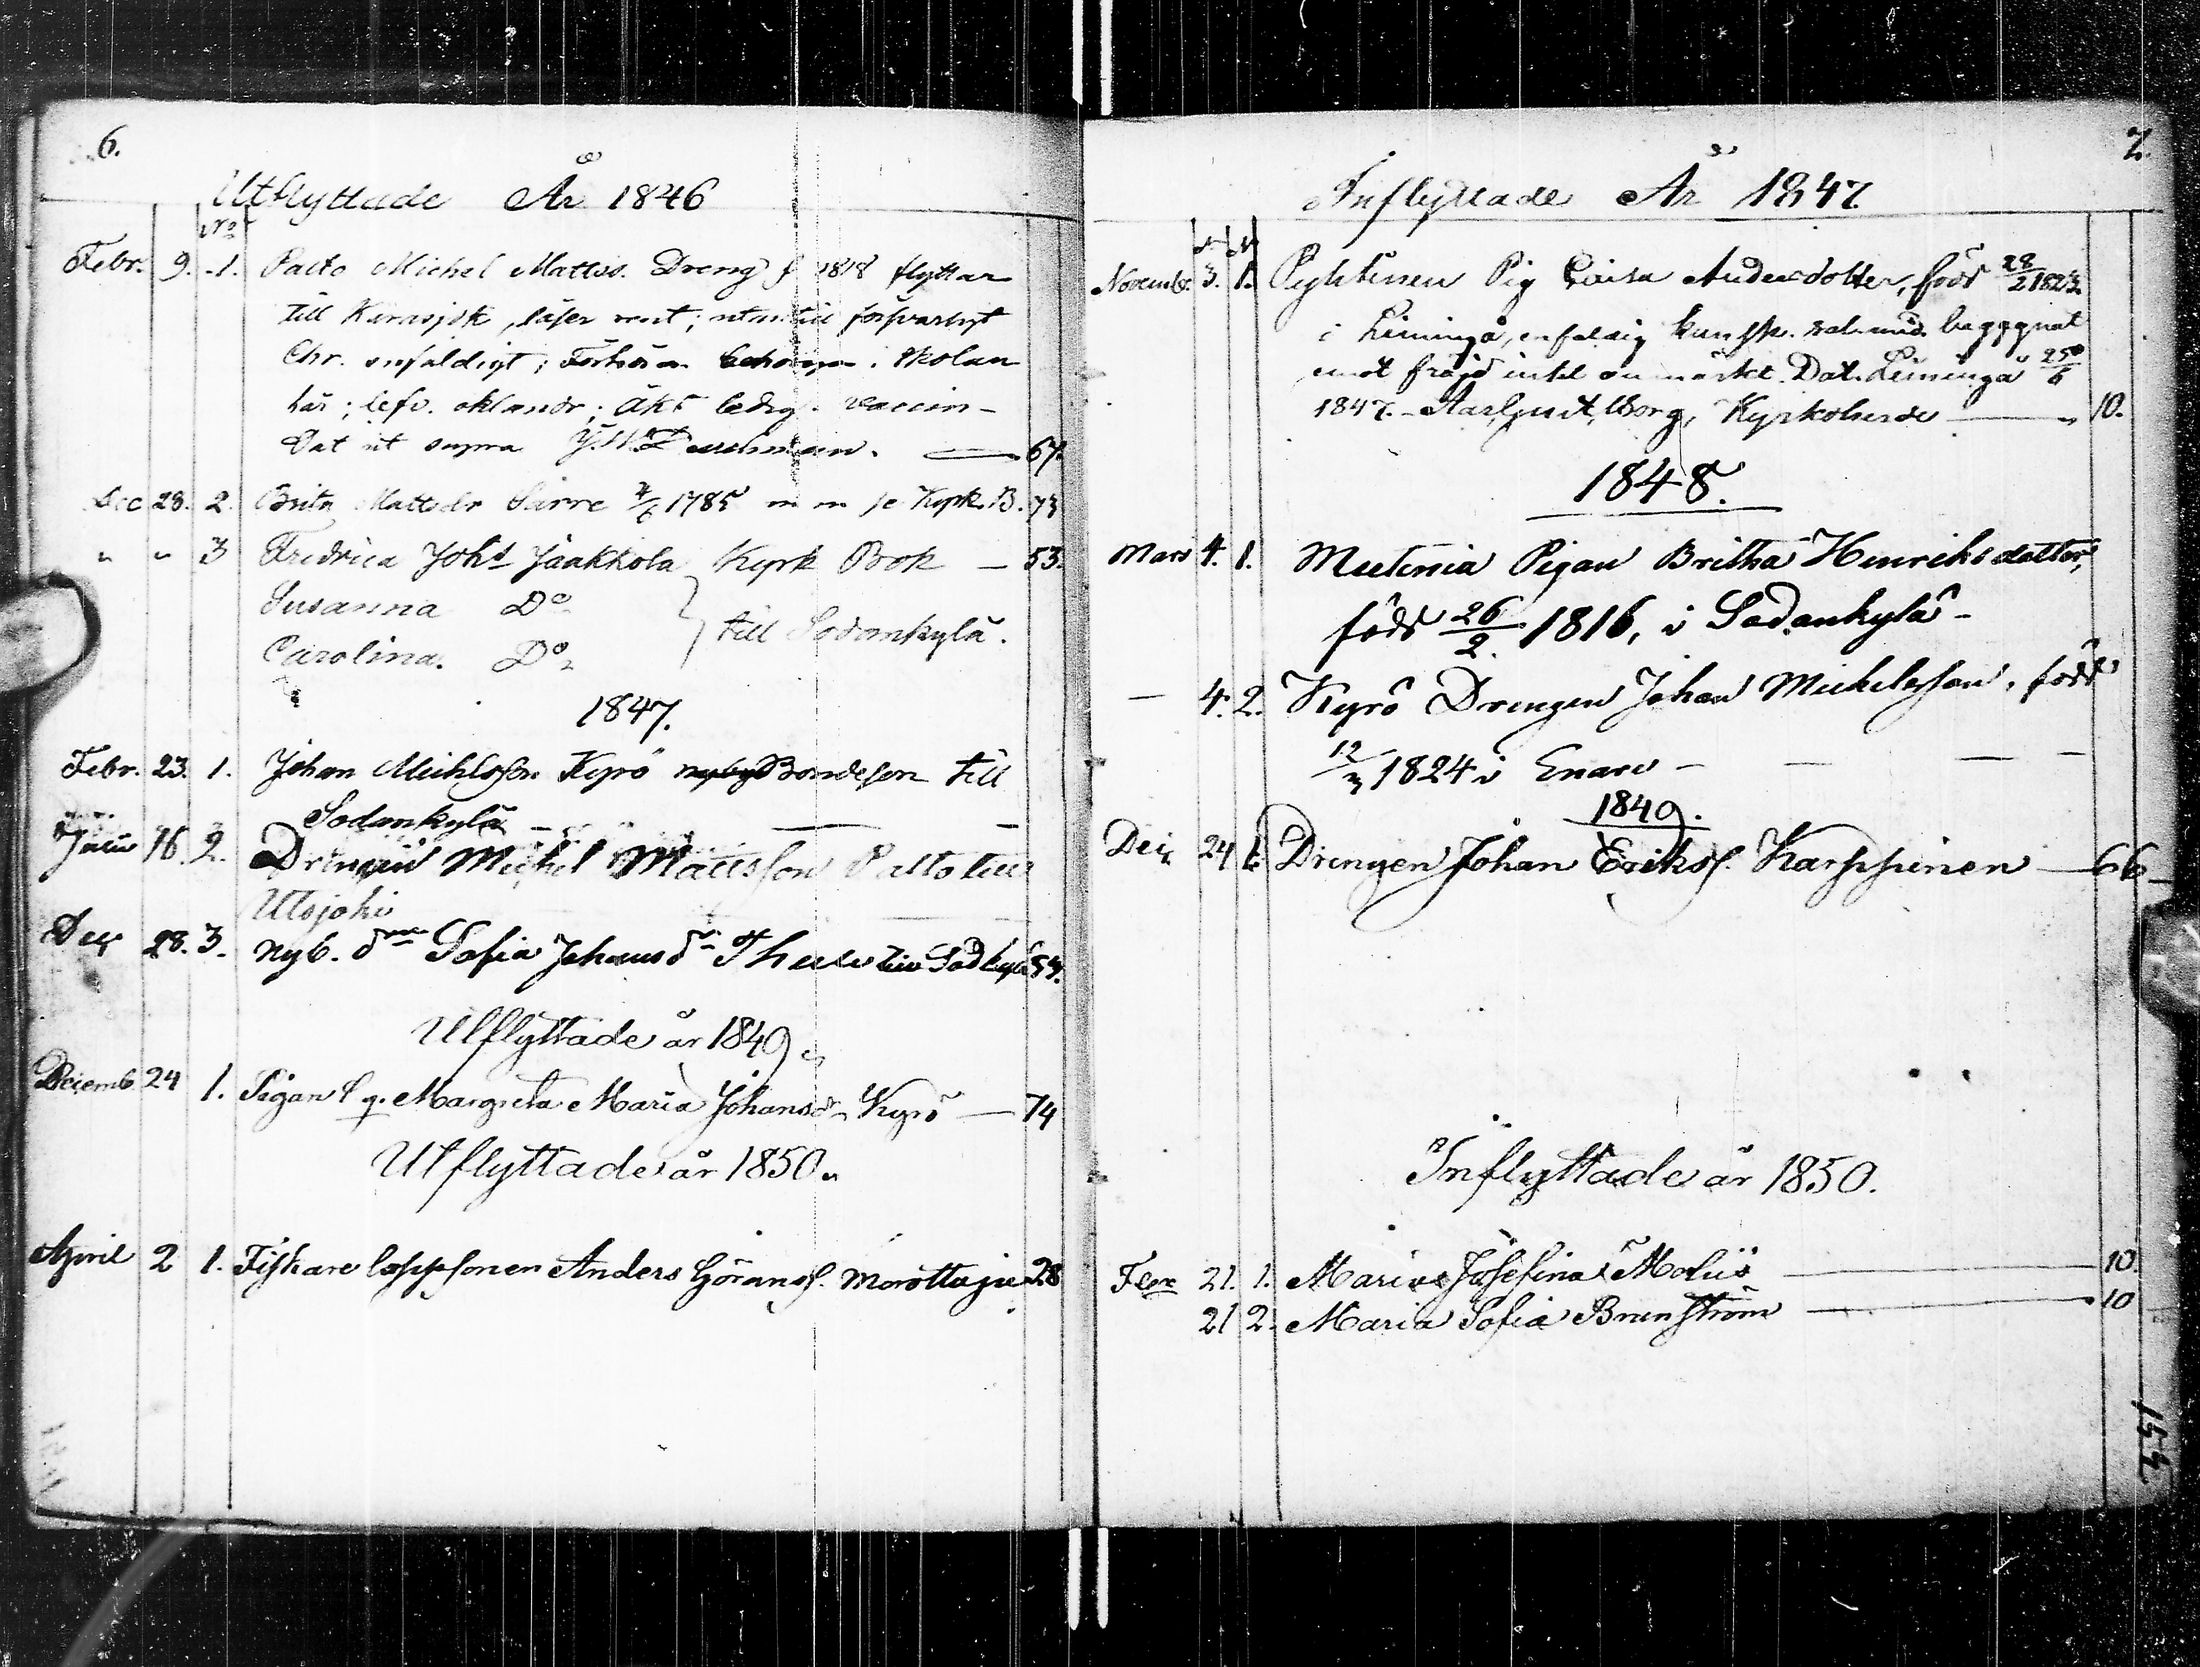 6.
Utflyttade År 1846
No
Febr. 9. 1. Palto Michel Mattss. Dreng f 1818 flyttar
till Karasjok, läser rent; utantill försvarligt
Chr. enfaldigt; Förhören skolan
här; lefv. oklandr; Äkt. ledig. vaccin-
Dat ut supra J. W. Durchman. — 67.
Dec 28. 2. Brita Mattsdr Sarre 1785 Kyrk. B. 73
" " 3 Fredrica Johd Jaakkola Kyrk Bok — 53.
Susanna Do
till Sodankylä.
Carolina. Do
1847.
Febr. 23. 1. Johan Michlsson Kyrö Bondeson till
Sodankylä — — —
16. 2. Drengen Michel Mattsson Palto till
Utsjoki
Dec 28. 3. Nyb. Sofia Johans dr Sodkylä 54.
Utflyttade år 1849.
Decemb. 24 1. Pigan Margreta Maria Johansdr Kyrö — 74
Utflyttade år 1850.
April 2 1. Fiskare lappsonen Anders Göranss. Morottaja 28
7.
Inflyttade År 1847
Novemb. 3. 1. Pyhtinen Pig Caisa Andersdotter, född 28/2 1823.
i Limingo, enfaldig kunsk. begggnat
emot fräjd intet anmärkt. Dat. Limingo 25/6
1847. Kyrkoherde — 10.
1848.
Mars 4. 1. Mutenia Pigan Britha Henriksdotter,
född 26/2. 1816, i Sodankylä -
— 4. 2. Kyrö Drengen Johan Mickelsson, född
12/3 1824 i Enare — — — —
1849.
Dec 24 1. Drengen Johan Erikss. Karppinen — 66
Inflyttade år 1850.
21. 1. Maria Josefina — 10.
21 2. Maria Sofia Brunström — 10